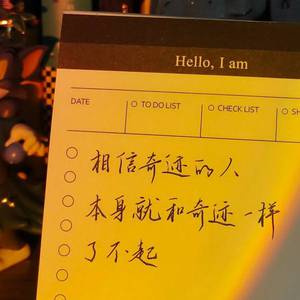 Hello, I am
DATE
TO DO LIST
CHECK LIST
相信奇迹的人
本身就和奇迹一样
了不起